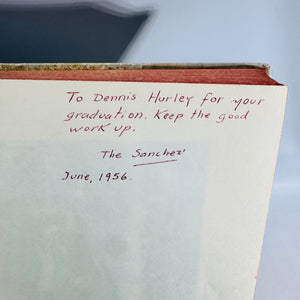 To Dennis Hurley for your
graduation. Keep the good
work up.
The Sanchez'
June, 1956.